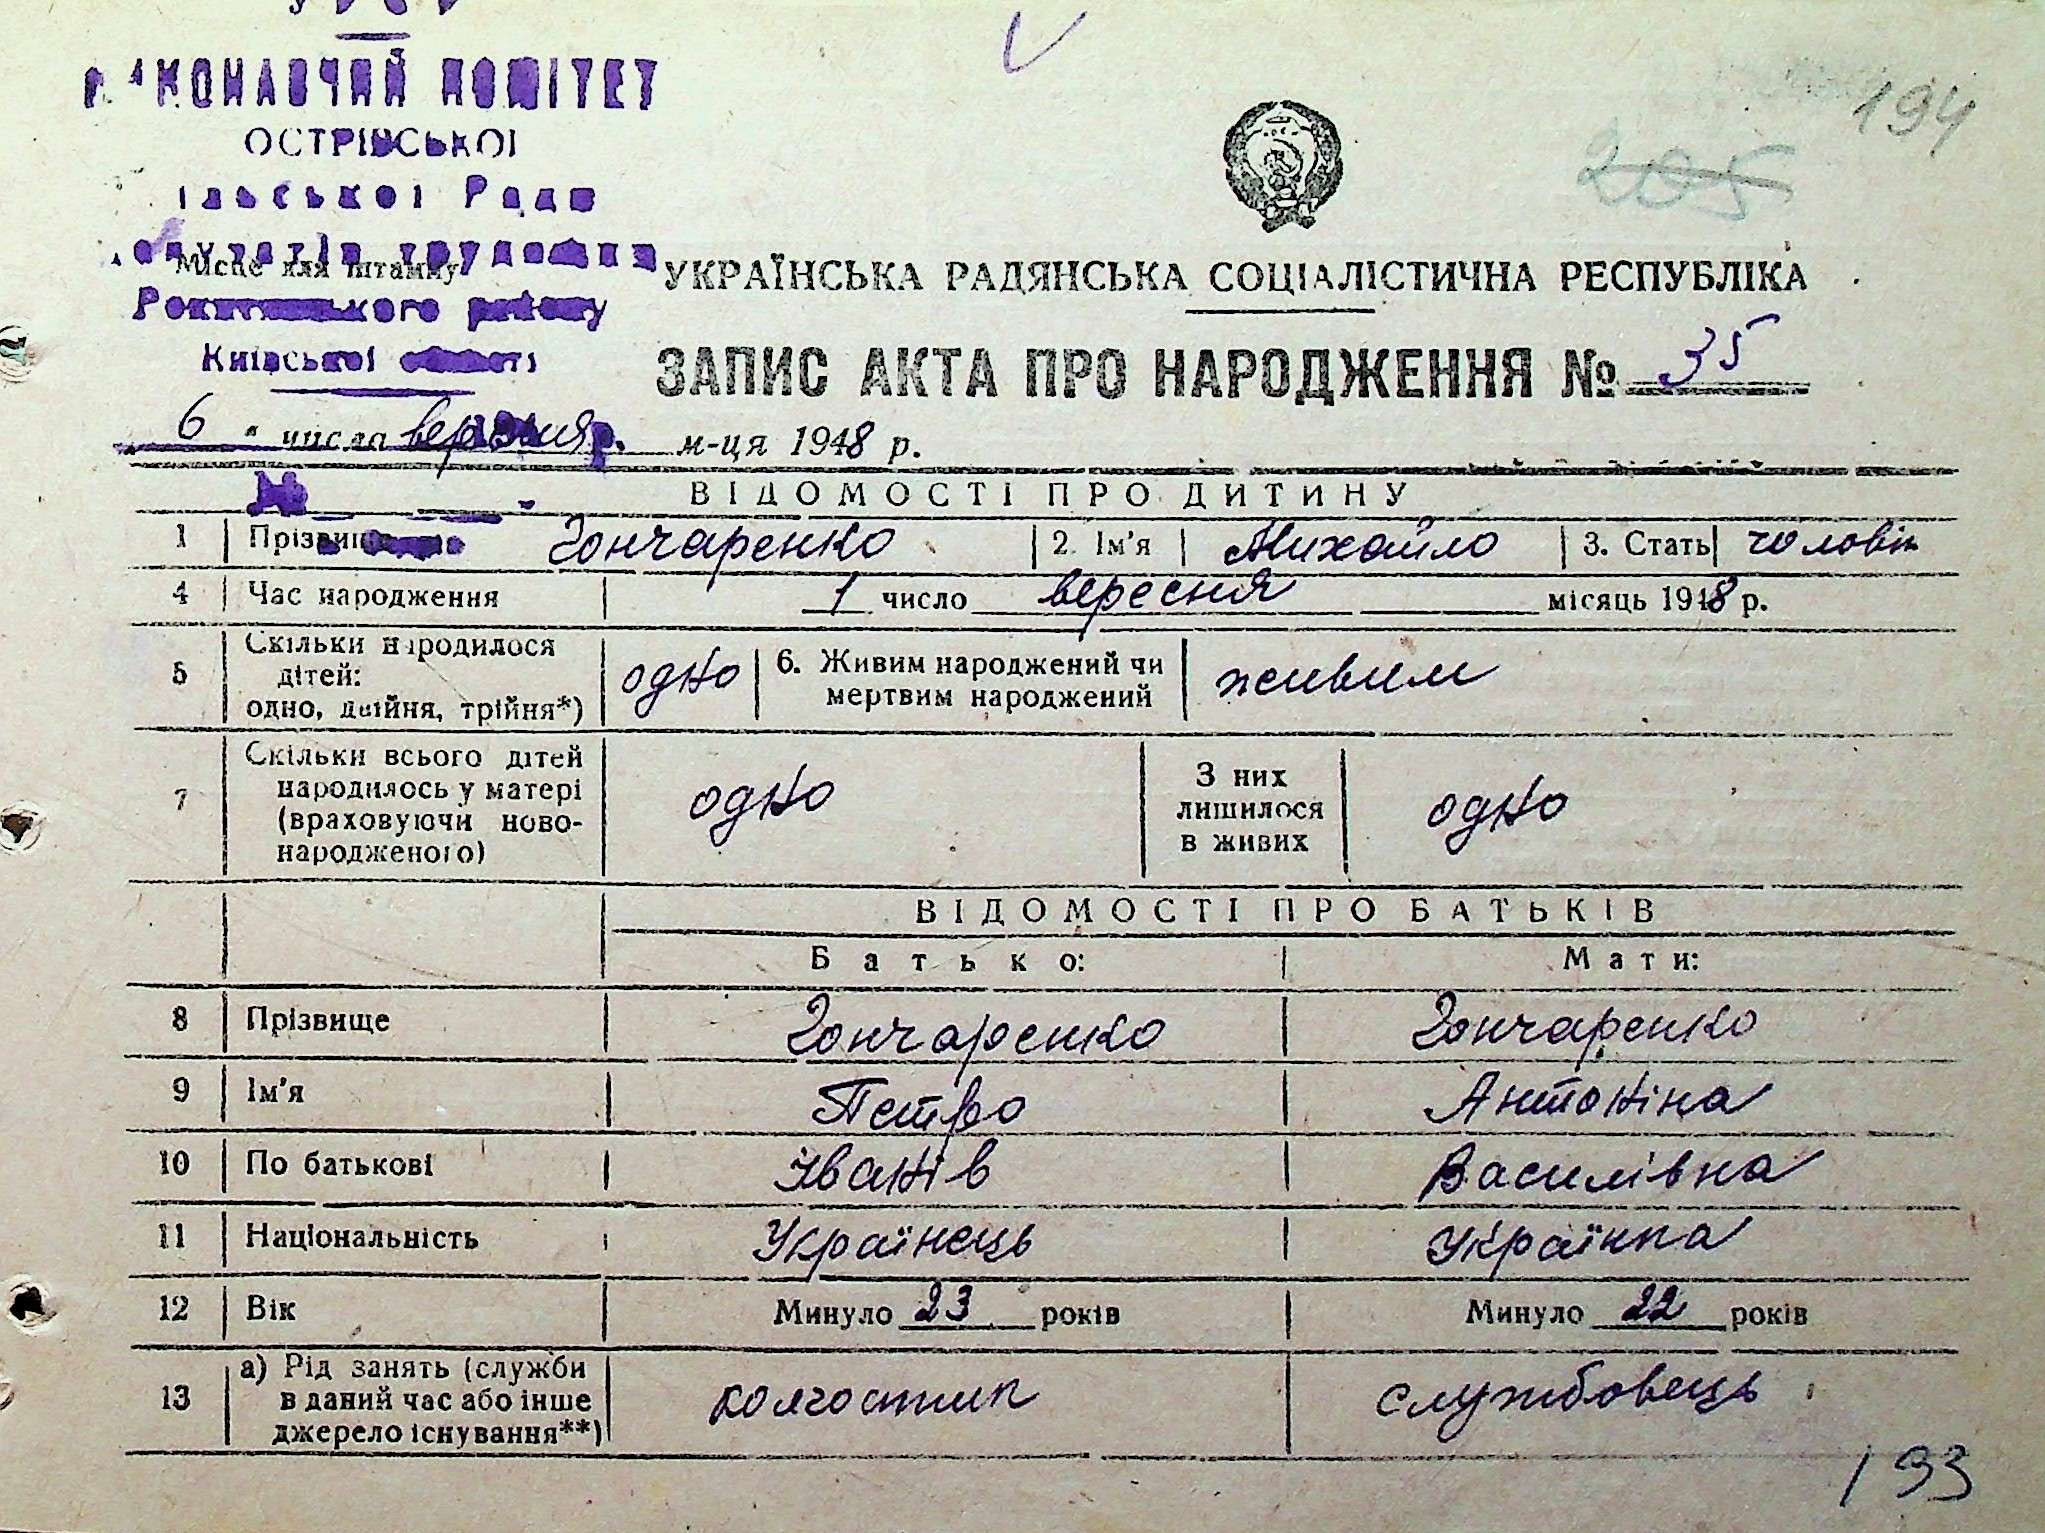 УРСР
ВИКОНАВЧИЙ КОМІТЕТ
ОСТРІВСЬКОЇ
ільської Ради
депутатів трудящих
Місце для штампу
Рокитнянського району
Київської області
194
205
УКРАЇНСЬКА РАДЯНСЬКА СОЦІАЛІСТИЧНА РЕСПУБЛІКА
ЗАПИС АКТА ПРО НАРОДЖЕННЯ № 35
„ 6 “ числа вересня р. м-ця 1948 р.
№
ВІДОМОСТІ ПРО ДИТИНУ
1 Прізвище Гончаренко 2. Ім'я Михайло 3. Стать чоловік
4 Час народження 1 число вересня місяць 1948 р.
5 Скільки народилося дітей: одно, двійня, трійня*) одно 6. Живим народжений чи мертвим народжений живим
7 Скільки всього дітей народилось у матері (враховуючи ново-народженого) одно З них лишилося в живих одно
ВІДОМОСТІ ПРО БАТЬКІВ
Батько: Мати:
8 Прізвище Гончаренко Гончаренко
9 Ім'я Петро Антоніна
10 По батькові Іванів Василівна
11 Національність Українець Українка
12 Вік Минуло 23 років Минуло 22 років
13 а) Рід занять (служби в даний час або інше джерело існування**) колгоспник службовець
193